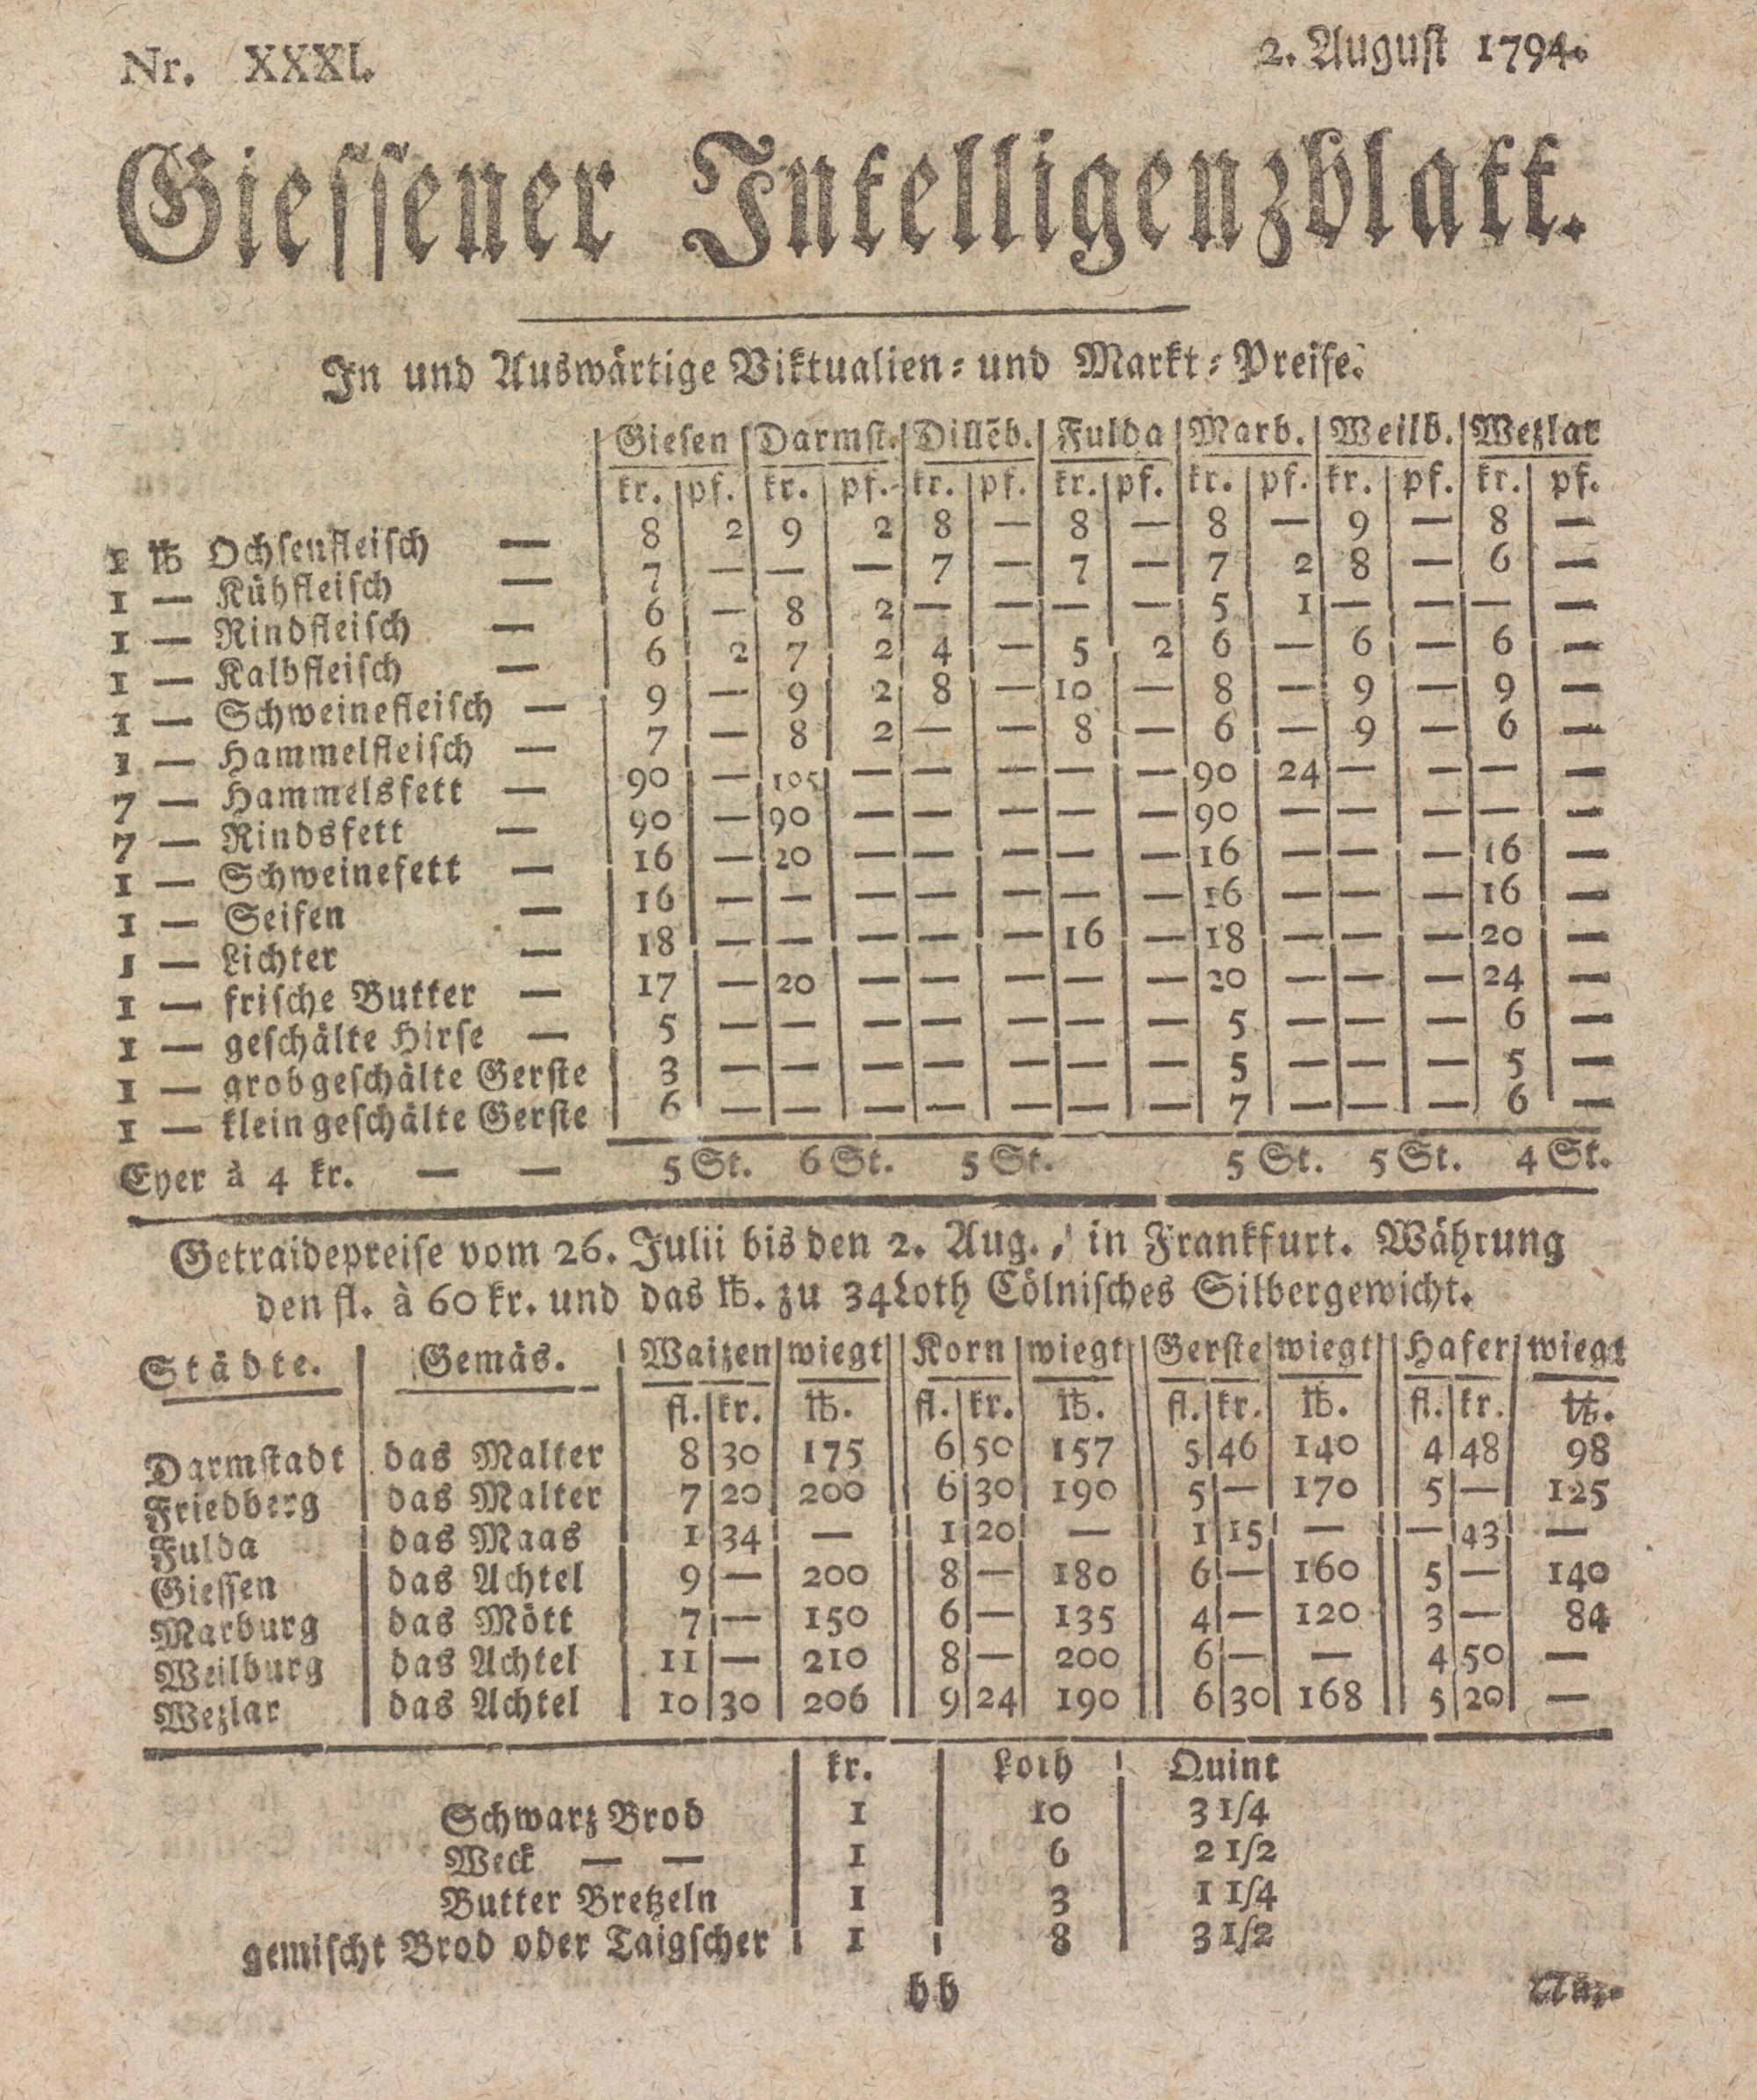 Nr. XXXI. 2. August 1794.
Giessener Intelligenzblatt.
In und Auswärtige Viktualien- und Markt-Preise.
Giesen Darmst. Dillēb. Fulda Marb. Weilb. Wezlar
kr. pf. kr. pf. kr. pf. kr. pf. kr. pf. kr. pf. kr. pf.
1 ℔ Ochsenfleisch — 8 2 9 2 8 — 8 — 8 — 9 — 8 —
1 — Kühfleisch — 7 — — — 7 — 7 — 7 2 8 — 6 —
1 — Rindfleisch — 6 — 8 2 — — — — 5 1 — — — —
1 — Kalbfleisch — 6 2 7 2 4 — 5 2 6 — 6 — 6 —
1 — Schweinefleisch — 9 — 9 2 8 — 10 — 8 — 9 — 9 —
1 — Hammelfleisch — 7 — 8 2 — — 8 — 6 — 9 — 6 —
7 — Hammelsfett — 90 — 105 — — — — — 90 24 — — — —
7 — Rindsfett — 90 — 90 — — — — — 90 — — — — —
1 — Schweinefett — 16 — 20 — — — — — 16 — — — 16 —
1 — Seifen — 16 — — — — — — — 16 — — — 16 —
1 — Lichter — 18 — — — — — 16 — 18 — — — 20 —
1 — frische Butter — 17 — 20 — — — — — 20 — — — 24 —
1 — geschälte Hirse — 5 — — — — — — — 5 — — — 6 —
1 — grobgeschälte Gerste 3 — — — — — — — 5 — — — 5 —
1 — klein geschälte Gerste 6 — — — — — — — 7 — — — 6 —
Eyer à 4 kr. — — 5 St. 6 St. 5 St. 5 St. 5 St. 4 St.
Getraidepreise vom 26. Julii bis den 2. Aug., in Frankfurt. Währung
den fl. à 60 kr. und das ℔. zu 34 Loth Cölnisches Silbergewicht.
Städte. Gemäs. Waizen wiegt Korn wiegt Gerste wiegt Hafer wiegt
fl. kr. ℔. fl. kr. ℔. fl. kr. ℔. fl. kr. ℔.
Darmstadt das Malter 8 30 175 6 50 157 5 46 140 4 48 98
Friedberg das Malter 7 20 200 6 30 190 5 — 170 5 — 125
Fulda das Maas 1 34 — 1 20 — 1 15 — — 43 —
Giessen das Achtel 9 — 200 8 — 180 6 — 160 5 — 140
Marburg das Mött 7 — 150 6 — 135 4 — 120 3 — 84
Weilburg das Achtel 11 — 210 8 — 200 6 — — 4 50 —
Wezlar das Achtel 10 30 206 9 24 190 6 30 168 5 20 —
kr. Loth Quint
Schwarz Brod 1 10 3 1/4
Weck — — 1 6 2 1/2
Butter Bretzeln 1 3 1 1/4
gemischt Brod oder Taigscher 1 8 3 1/2
hh